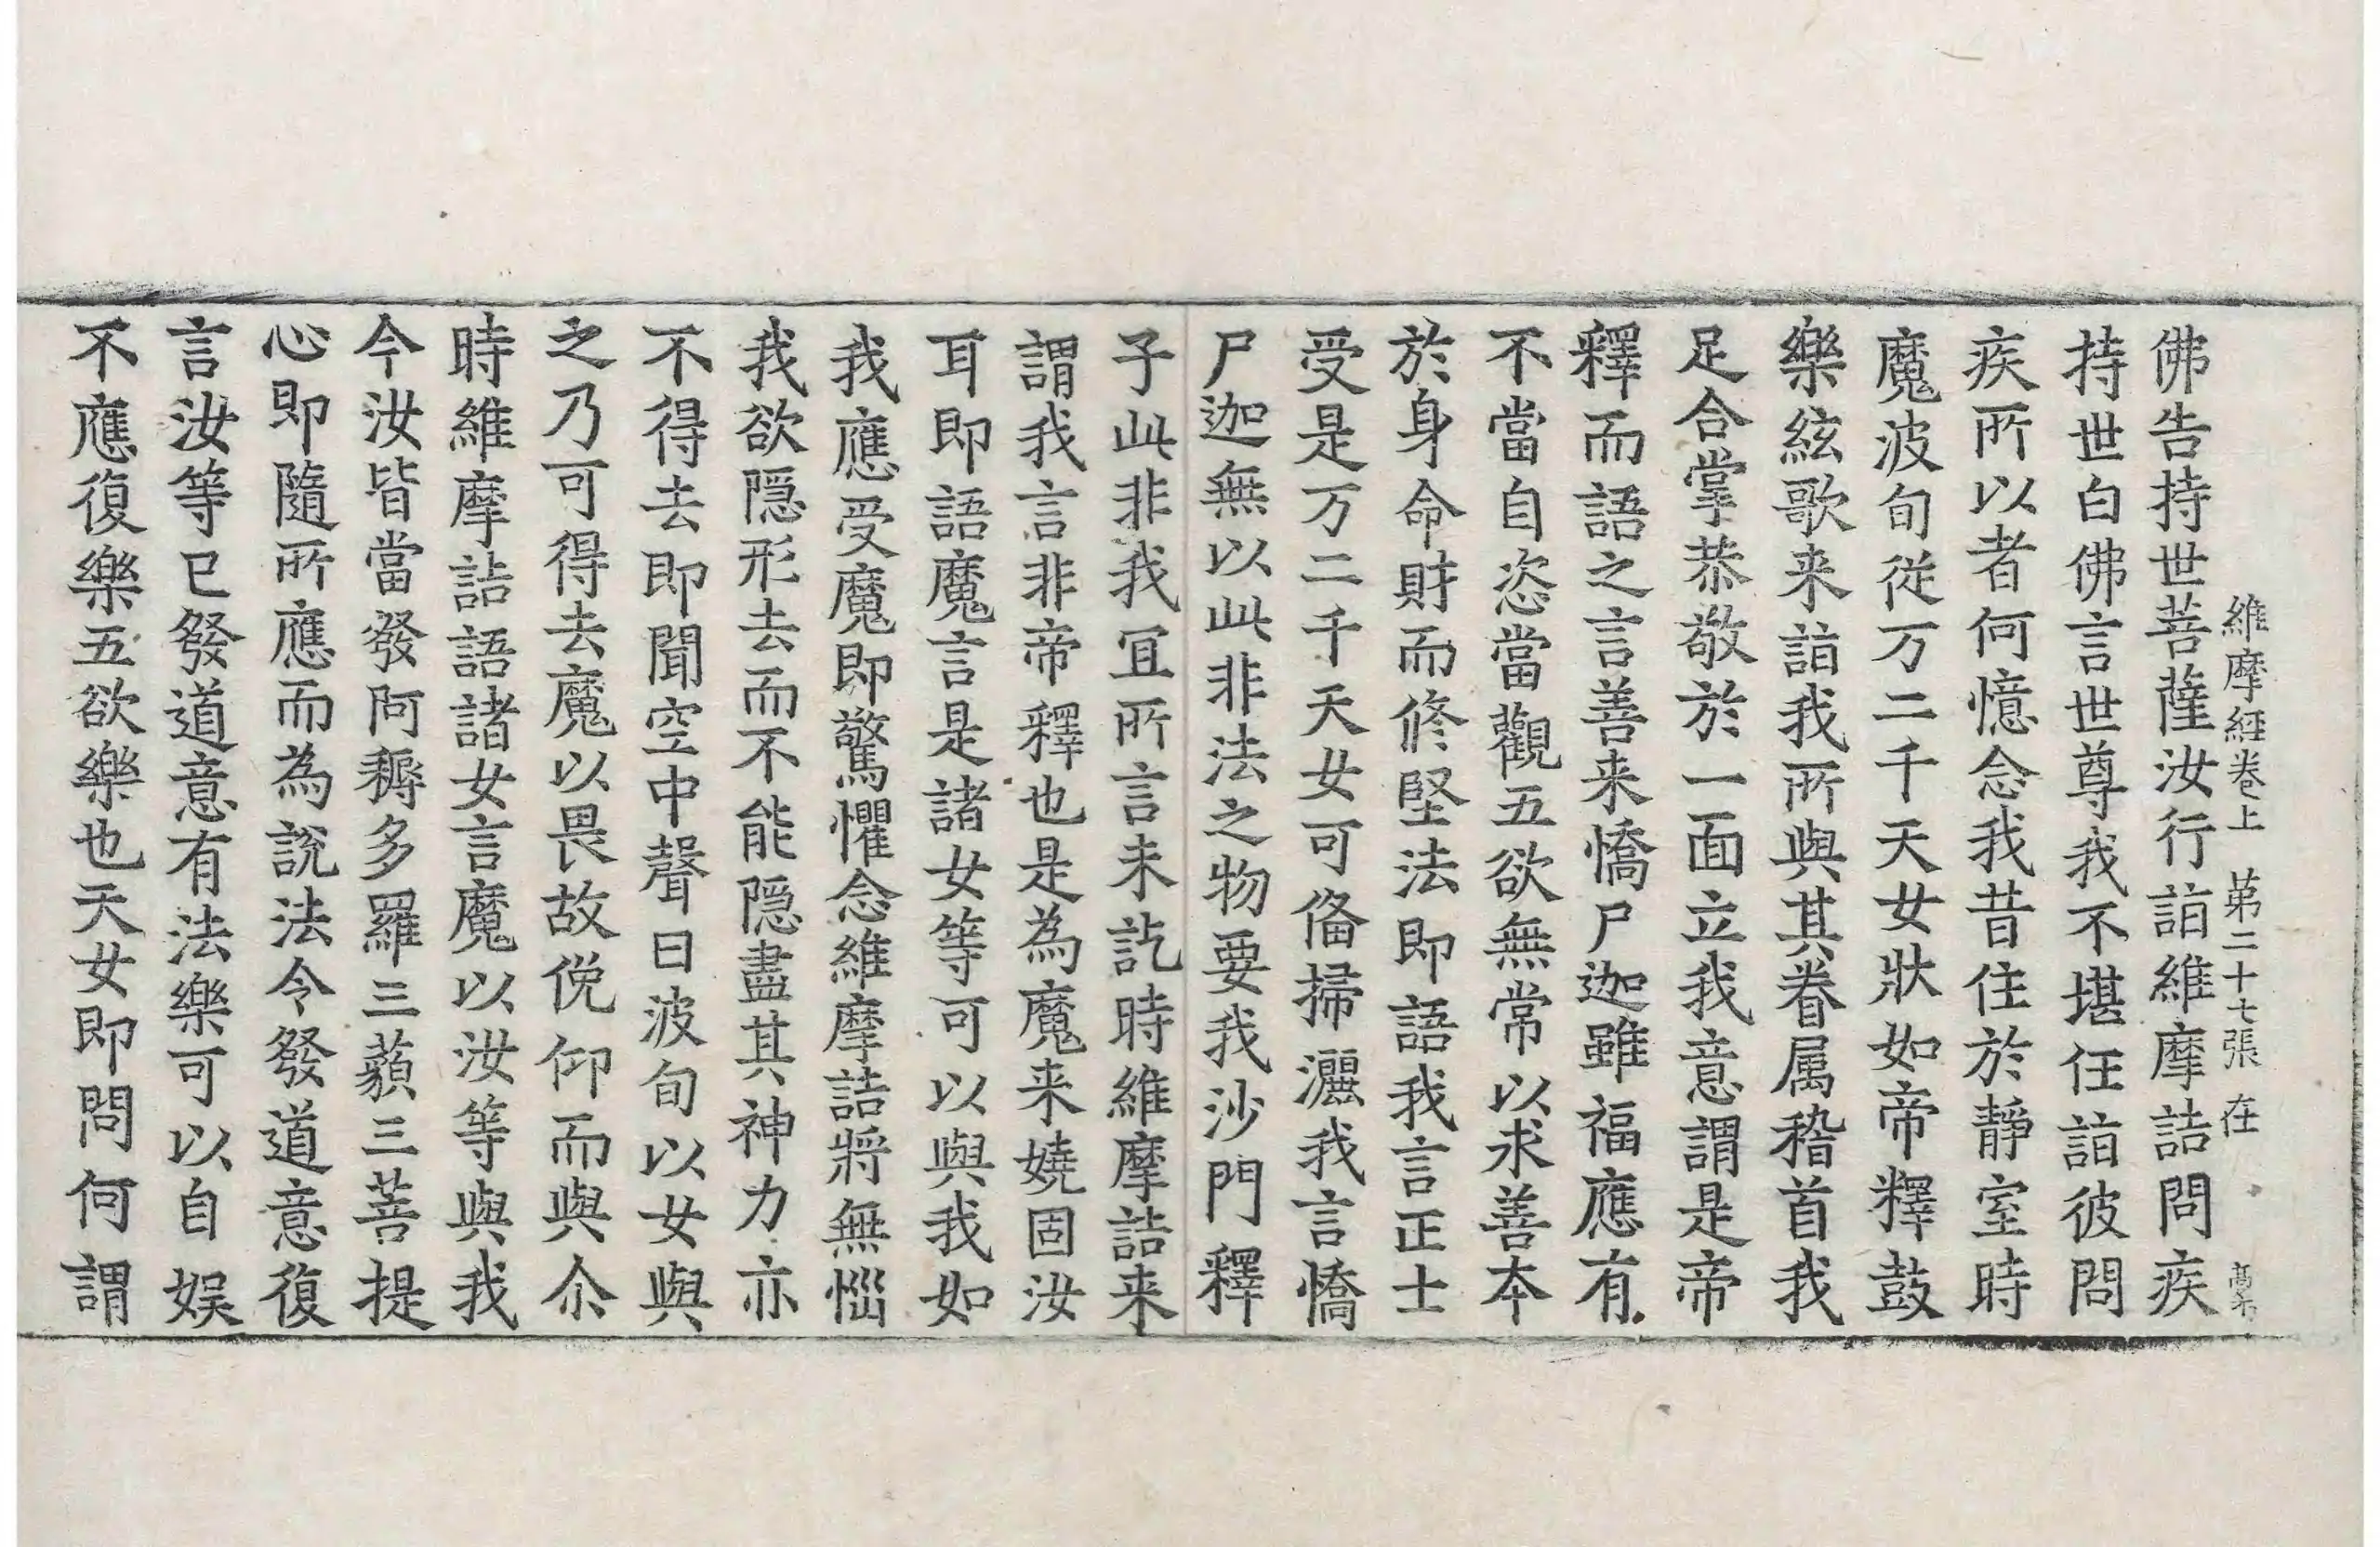 維摩經卷上 第二十七張 在
佛告持世菩薩汝行詣維摩詰問疾
持世白佛言世尊我不堪任詣彼問
疾所以者何憶念我昔住於靜室時
魔波旬從万二千天女狀如帝釋鼓
樂絃歌来詣我所與其眷属稽首我
足合掌恭敬於一面立我意謂是帝
釋而語之言善来憍尸迦雖福應有
不當自恣當觀五欲無常以求善本
於身命財而修堅法即語我言正士
受是万二千天女可俻掃灑我言憍
尸迦無以此非法之物要我沙門釋
子此非我冝所言未訖時維摩詰来
謂我言非帝釋也是為魔来嬈固汝
耳即語魔言是諸女等可以與我如
我應受魔即驚懼念維摩詰將無惱
我欲隠形去而不能隠盡其神力亦
不得去即聞空中聲曰波旬以女與
之乃可得去魔以畏故俛仰而與尒
時維摩詰語諸女言魔以汝等與我
今汝皆當發阿耨多羅三藐三菩提
心即隨所應而為說法令發道意復
言汝等已發道意有法樂可以自娱
不應復樂五欲樂也天女即問何謂